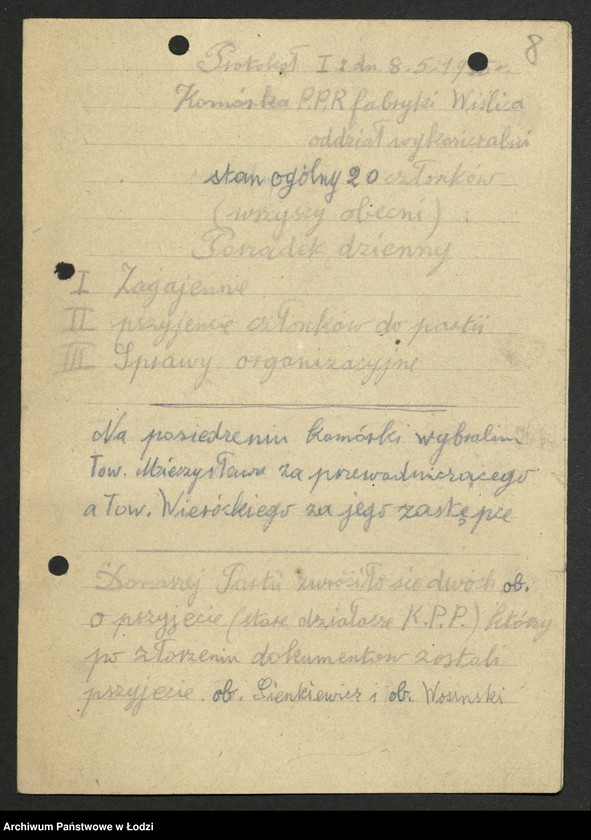 8
Protokół I z dn 8.5.19 r.
Komórka P.P.R fabryki Wiślica
oddział wykańczalni
stan ogólny 20 członków
(wszyscy obecni)
Porządek dzienny
I Zagajenne
II przyjęcie członków do partii
III Sprawy organizacyjne
Na posiedzeniu komórki wybralim
Tow. Mieczysława za przewodniczącego
a Tow. za jego zastępce
Donaszej Partii zwróciło się dwoch ob.
o przyjęcie (stare działacze K.P.P.) którzy
po złorzeniu dokumentow zostali
przyjęcie ob. Sienkiewicz i ob. Wosinski
Archiwum Państwowe w Łodzi